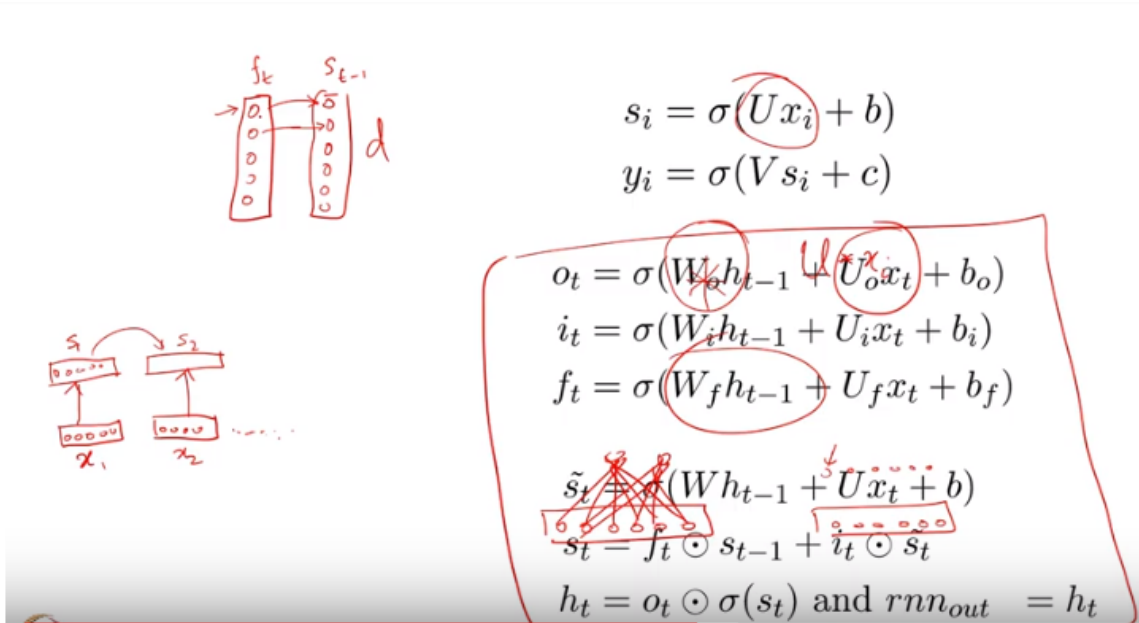 f_t s_{t-1}
d
s_i = σ(Ux_i + b)
y_i = σ(Vs_i + c)
U * x_i
o_t = σ(W_o h_{t-1} + U_o x_t + b_o)
i_t = σ(W_i h_{t-1} + U_i x_t + b_i)
f_t = σ(W_f h_{t-1} + U_f x_t + b_f)
s_1 s_2
x_1 x_2 ......
s̃_t = σ(Wh_{t-1} + Ux_t + b)
s_t = f_t ⊙ s_{t-1} + i_t ⊙ s̃_t
h_t = o_t ⊙ σ(s_t) and rnn_{out} = h_t